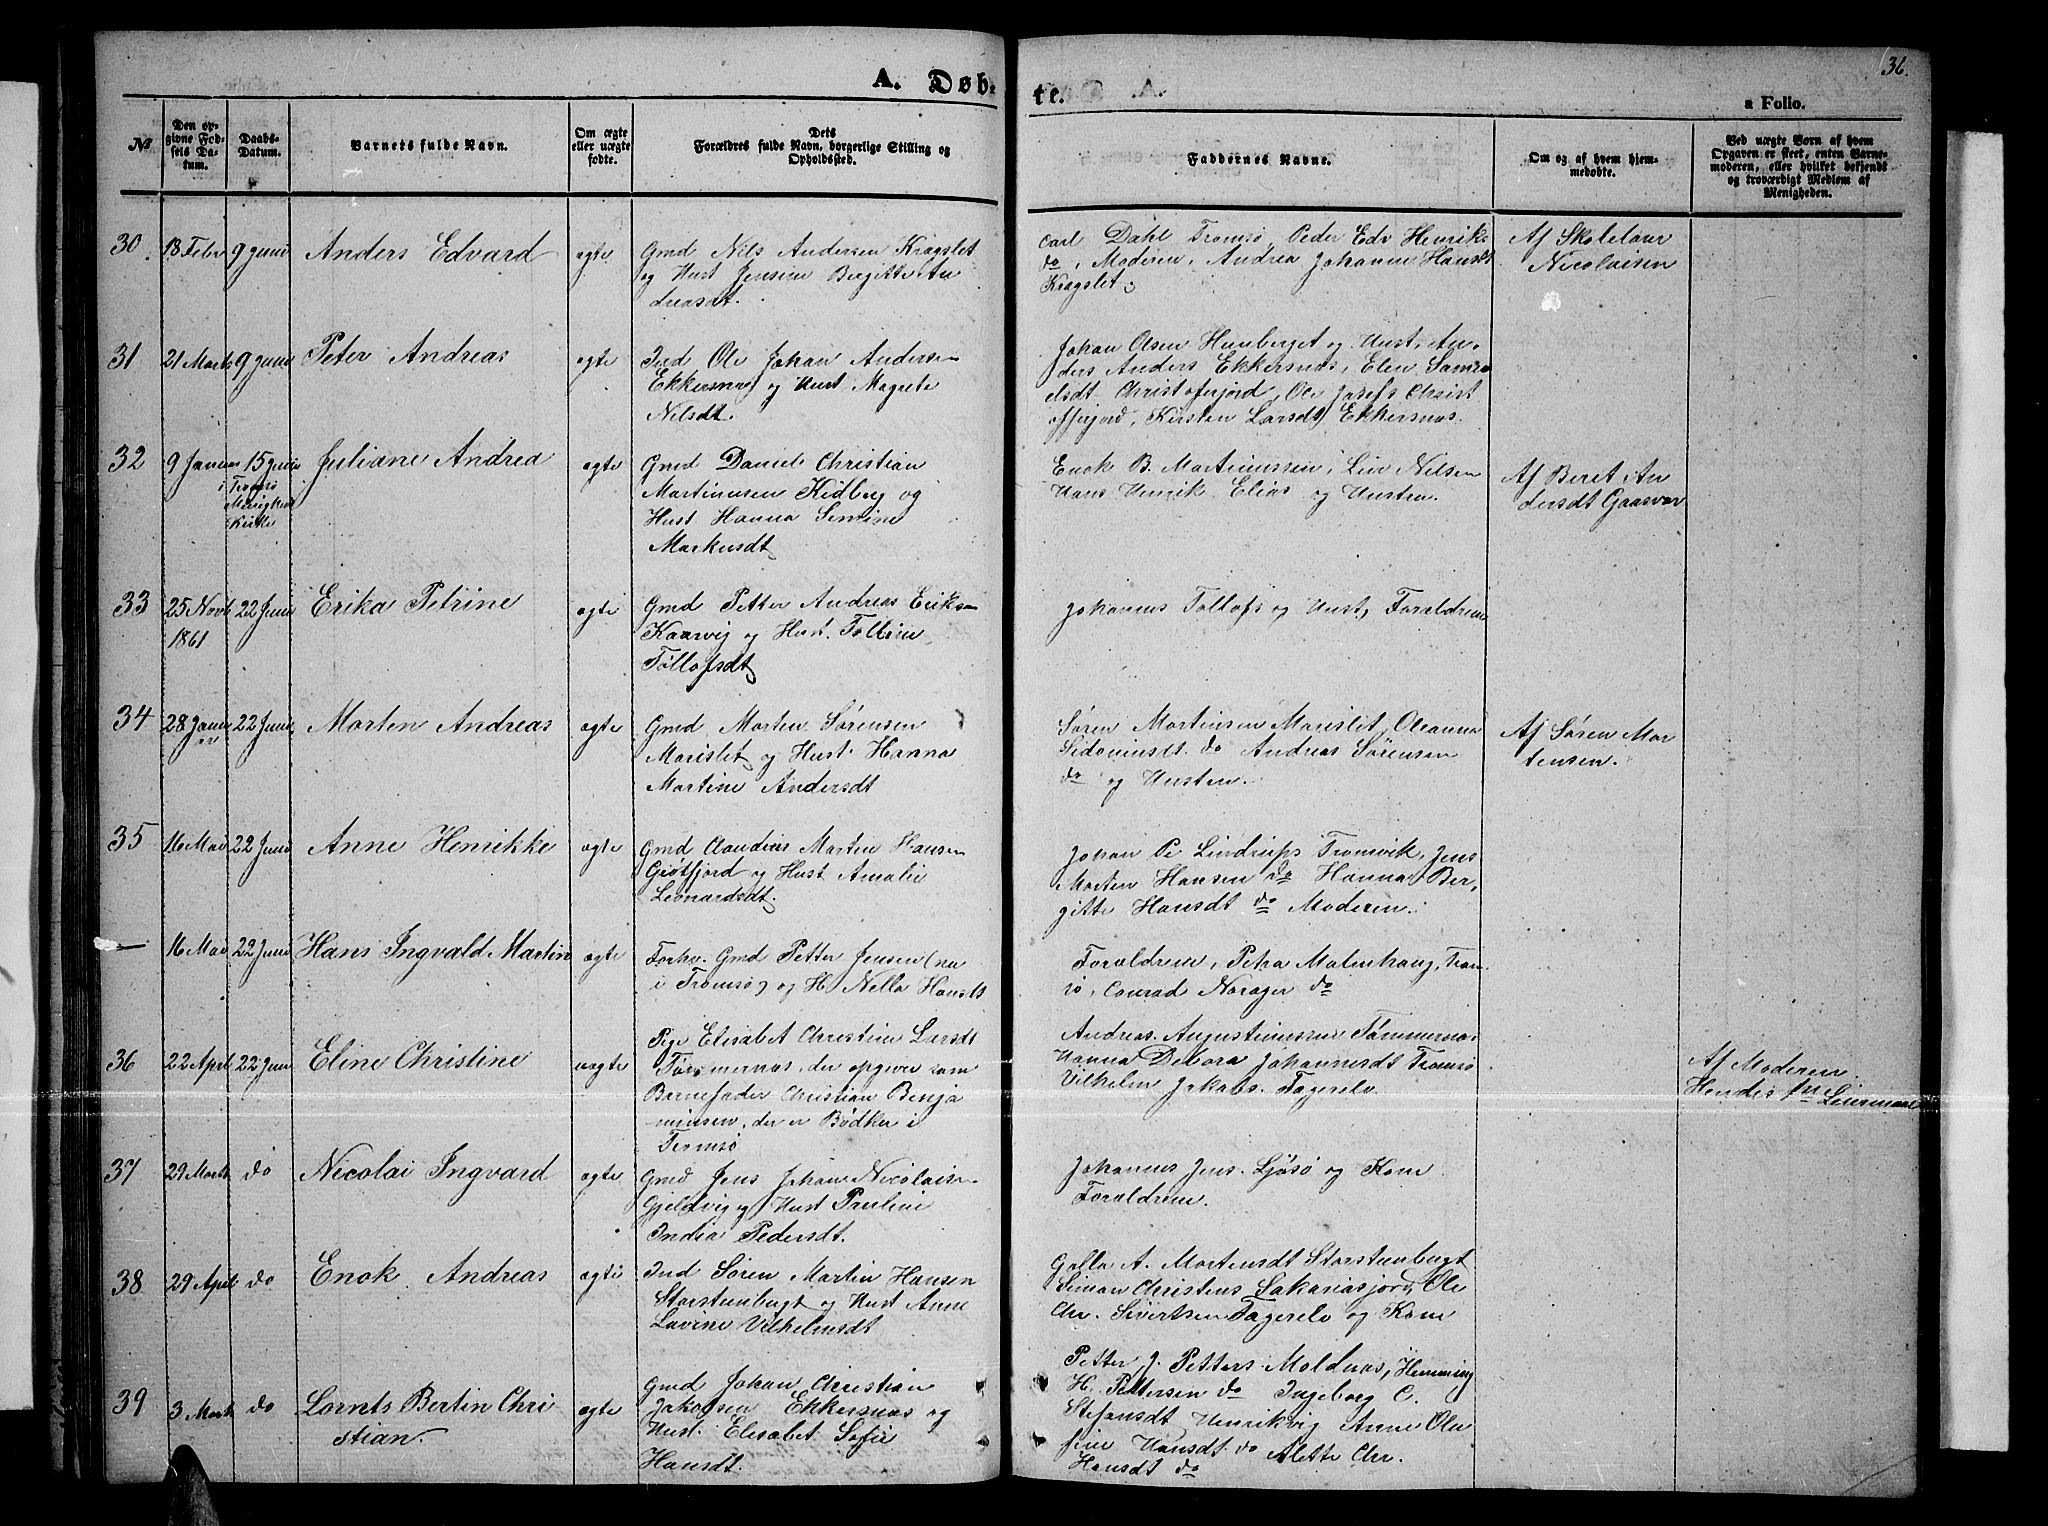 36.
A. Døb-
te.
a Folio.
№
Den op-
givne Fød-
sels Da-
tum.
Daabs-
Datum.
Barnets fulde Navn.
Om ægte
eller uægte
fødte.
Dets
Forældres fulde Navn, borgerlige Stilling og
Opholdssted.
Faddernes Navne.
Om og af hvem hjem-
medøbte.
Ved uægte Børn af hvem
Opgaven er skeet, enten Barne-
moderen, eller hvilket bekjendt
og troværdigt Medlem af
Menigheden.
30
18 Febr
9 Juni
Anders Edvard
ægte
Gmd Nils Andersen Kragslet
og Hust Jensine Bergitte An
dreasdt.
Carl Dahl Tromsø, Peder Edv Henriks
do, Moderen, Andrea Johanne Hansdt
Kragslet.
Af Skolelærer
Nicolaisen
31
21 Marts
9 Juni
Peter Andreas
ægte
Ind Ole Johan Andersen
Ekkersnæs og Hust Magrete
Nilsdt.
Johan Olsen og Hust, An-
ders Anders Ekkersnæs, Elen Samu
elsdt Christoferjord, Ole Josefs Christ
offerjord, Kirsten Larsdt Ekkersnæs.
32
9 Januar
15 Juni
i Tromsø
Menigheds
Kirke
Juliane Andrea
ægte
Gmd Daniel Christian
Martinusen Kidberg og
Hust Hanna Semine
Markusdt
Enok B. Martinussen, Nilsen
Hans Henrik Elias og Hustru.
Af Beret An
dersdt Gaasvær
33
25 Novb
1861
22 Juni
Erika Petrine
ægte
Gmd Petter Andreas Eriksen
Kaarvig og Hust. Tolline
Tollofsdt
Johannes Tollofs og Hust, Forældrene
34
28 Janu
ar
22 Juni
Morten Andreas
ægte
Gmd Morten Sørensen
Marislet og Hust. Hanna
Martine Andersdt
Søren Martinsen Marislet, Oleanna
Sidoniusdt do Andreas Sørensen
do og Hustru.
Af Søren Mor
tensen.
35
16 Mai
22 Juni
Anne Henrikke
ægte
Gmd Claudius Martin Hansen
Giøtfjord og Hust Amalie
Leonardsdt.
Johan Pe Lindrups Tromvik, Jens
Morten Hansen do Hanna Ber,
gitte Hansdt do Moderen.
—
16 Mai
22 Juni
Hans Ingvald Martin
ægte
Forhv. Gmd Petter Jensen (nu
i Tromsø) og H. Nella Hansdt
Forældrene, Petra Malenhaug, Trom-
sø, Conrad Norager do
36
22 April
22 Juni
Eline Christine
uægte
Pige Elisabet Christine Larsdt
Tømmernæs, der opgiver som
Barnefader Christian Benja
minsen, der er Bødker i
Tromsø
Andreas Augustinussen Tømmernæs
Hanna Debora Johannesdt Tromsø
Vilhelm Jakobs. Fagerelv.
Af Moderen.
Hendes Leiermaal
37
29 Marts
do
Nicolai Ingvard
ægte
Gmd Jens Johan Nicolaisen
Gjeldvig og Hust Pauline
India Pedersdt.
Johannes Jens. Ljøsø og Kone
Forældrene.
38
29 April
do
Enok Andreas
ægte
Ind Søren Martin Hansen
Storstenbugt og Hust Anne
Lavine Vilhelmsdt
A. Mortensdt Storstenbugt
Simon Christens Sakariasjord, Ole
Chr. Sivertsen Fagerelv og Kone
39
3 Marts
do
Lornts Bertin Chri
stian.
ægte
Gmd Johan Christian
Jakobsen Ekkersnæs og
Hust. Elisabet Sofie
Hansdt.
Petter J. Petters Moldnæs, Hemming
H. Pettersen do Ingeborg C.
Stefansdt Henrikvig Anne Ole
fine Hansdt do Alette Chr.
Hansdt do